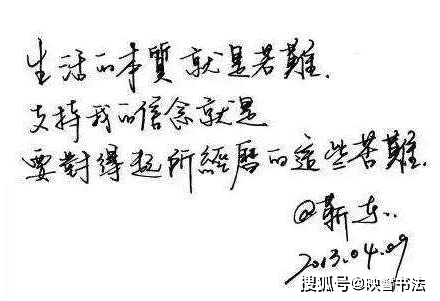 生活的本質就是苦難.
支持我的信念就是
要對得起所經曆的這些苦難.
@靳东..
2013.04.09
搜狐号@映雪书法